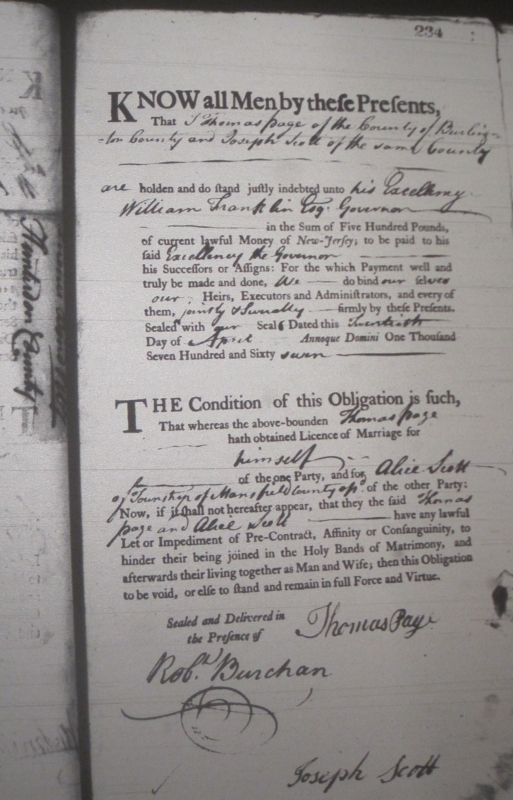 234
KNOW all Men by theſe Preſents,
That I Thomas Page of the County of Burling-
-ton County and Joseph Scott of the same County
are holden and do ſtand juſtly indebted unto his Excellency
William Franklin Esq. Governor
in the Sum of Five Hundred Pounds,
of current lawful Money of New-Jerſey; to be paid to his
ſaid Excellency the Governor
his Succeſſors or Aſſigns: For the which Payment well and
truly be made and done, We do bind our selves
our Heirs, Executors and Adminiſtrators, and every of
them, jointly & severally firmly by theſe Preſents.
Sealed with our Seals Dated this Twentieth
Day of April Annoque Domini One Thouſand
Seven Hundred and Sixty seven
THE Condition of this Obligation is ſuch,
That whereas the above-bounden Thomas Page
hath obtained Licence of Marriage for
himself
of the one Party, and for Alice Scott
of Township of Mansfield County of the other Party;
Now, if it ſhall not hereafter appear, that they the ſaid Thomas
Page and Alice Scott have any lawful
Let or Impediment of Pre-Contract, Affinity or Conſanguinity, to
hinder their being joined in the Holy Bands of Matrimony, and
afterwards their living together as Man and Wife; then this Obligation
to be void, or elſe to ſtand and remain in full Force and Virtue.
Sealed and Delivered in
the Preſence of
Thomas Page
Robt. Burchan
Joseph Scott
Hunterdon County